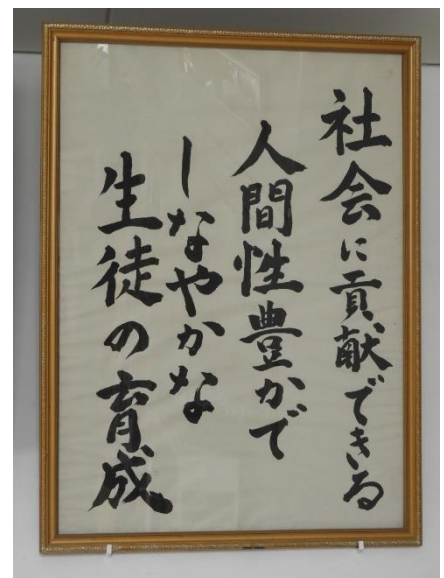 社会に貢献できる
人間性豊かで
しなやかな
生徒の育成